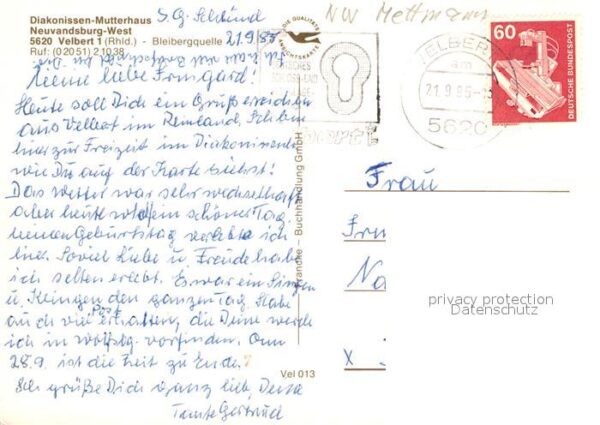 Diakonissen-Mutterhaus
Neuvandsburg-West
5620 Velbert 1 (Rhld.) - Bleibergquelle
Ruf: (0 20 51) 2 10 38
21.9.85
Meine liebe Irmgard!
Heute soll Dich ein Gruß erreichen
aus Velbert im Rheinland. Ich bin
hier zur Freizeit im Diakonissenh.
wie Du auf der Karte siehst!
Das Wetter war sehr wechselhaft
aber heute ein schöner Tag.
meinen Geburtstag verlebte ich
hier. Soviel Liebe u. Freude habe
ich selten erlebt. Es war ein Singen
u. Klingen den ganzen Tag. Habe
auch viel Post erhalten, die Deine werde
ich in vorfinden. Am
28.9. ist die Zeit zu Ende.
Ich grüße Dich ganz lieb, Deine
Tante Gertrud
DIE QUALITÄTS
ANSICHTSKARTE
Francke - Buchhandlung GmbH
Vel 013
NW Mettmann
VELBERT
21.9.85
5620
60
DEUTSCHE BUNDESPOST
Frau
privacy protection
Datenschutz